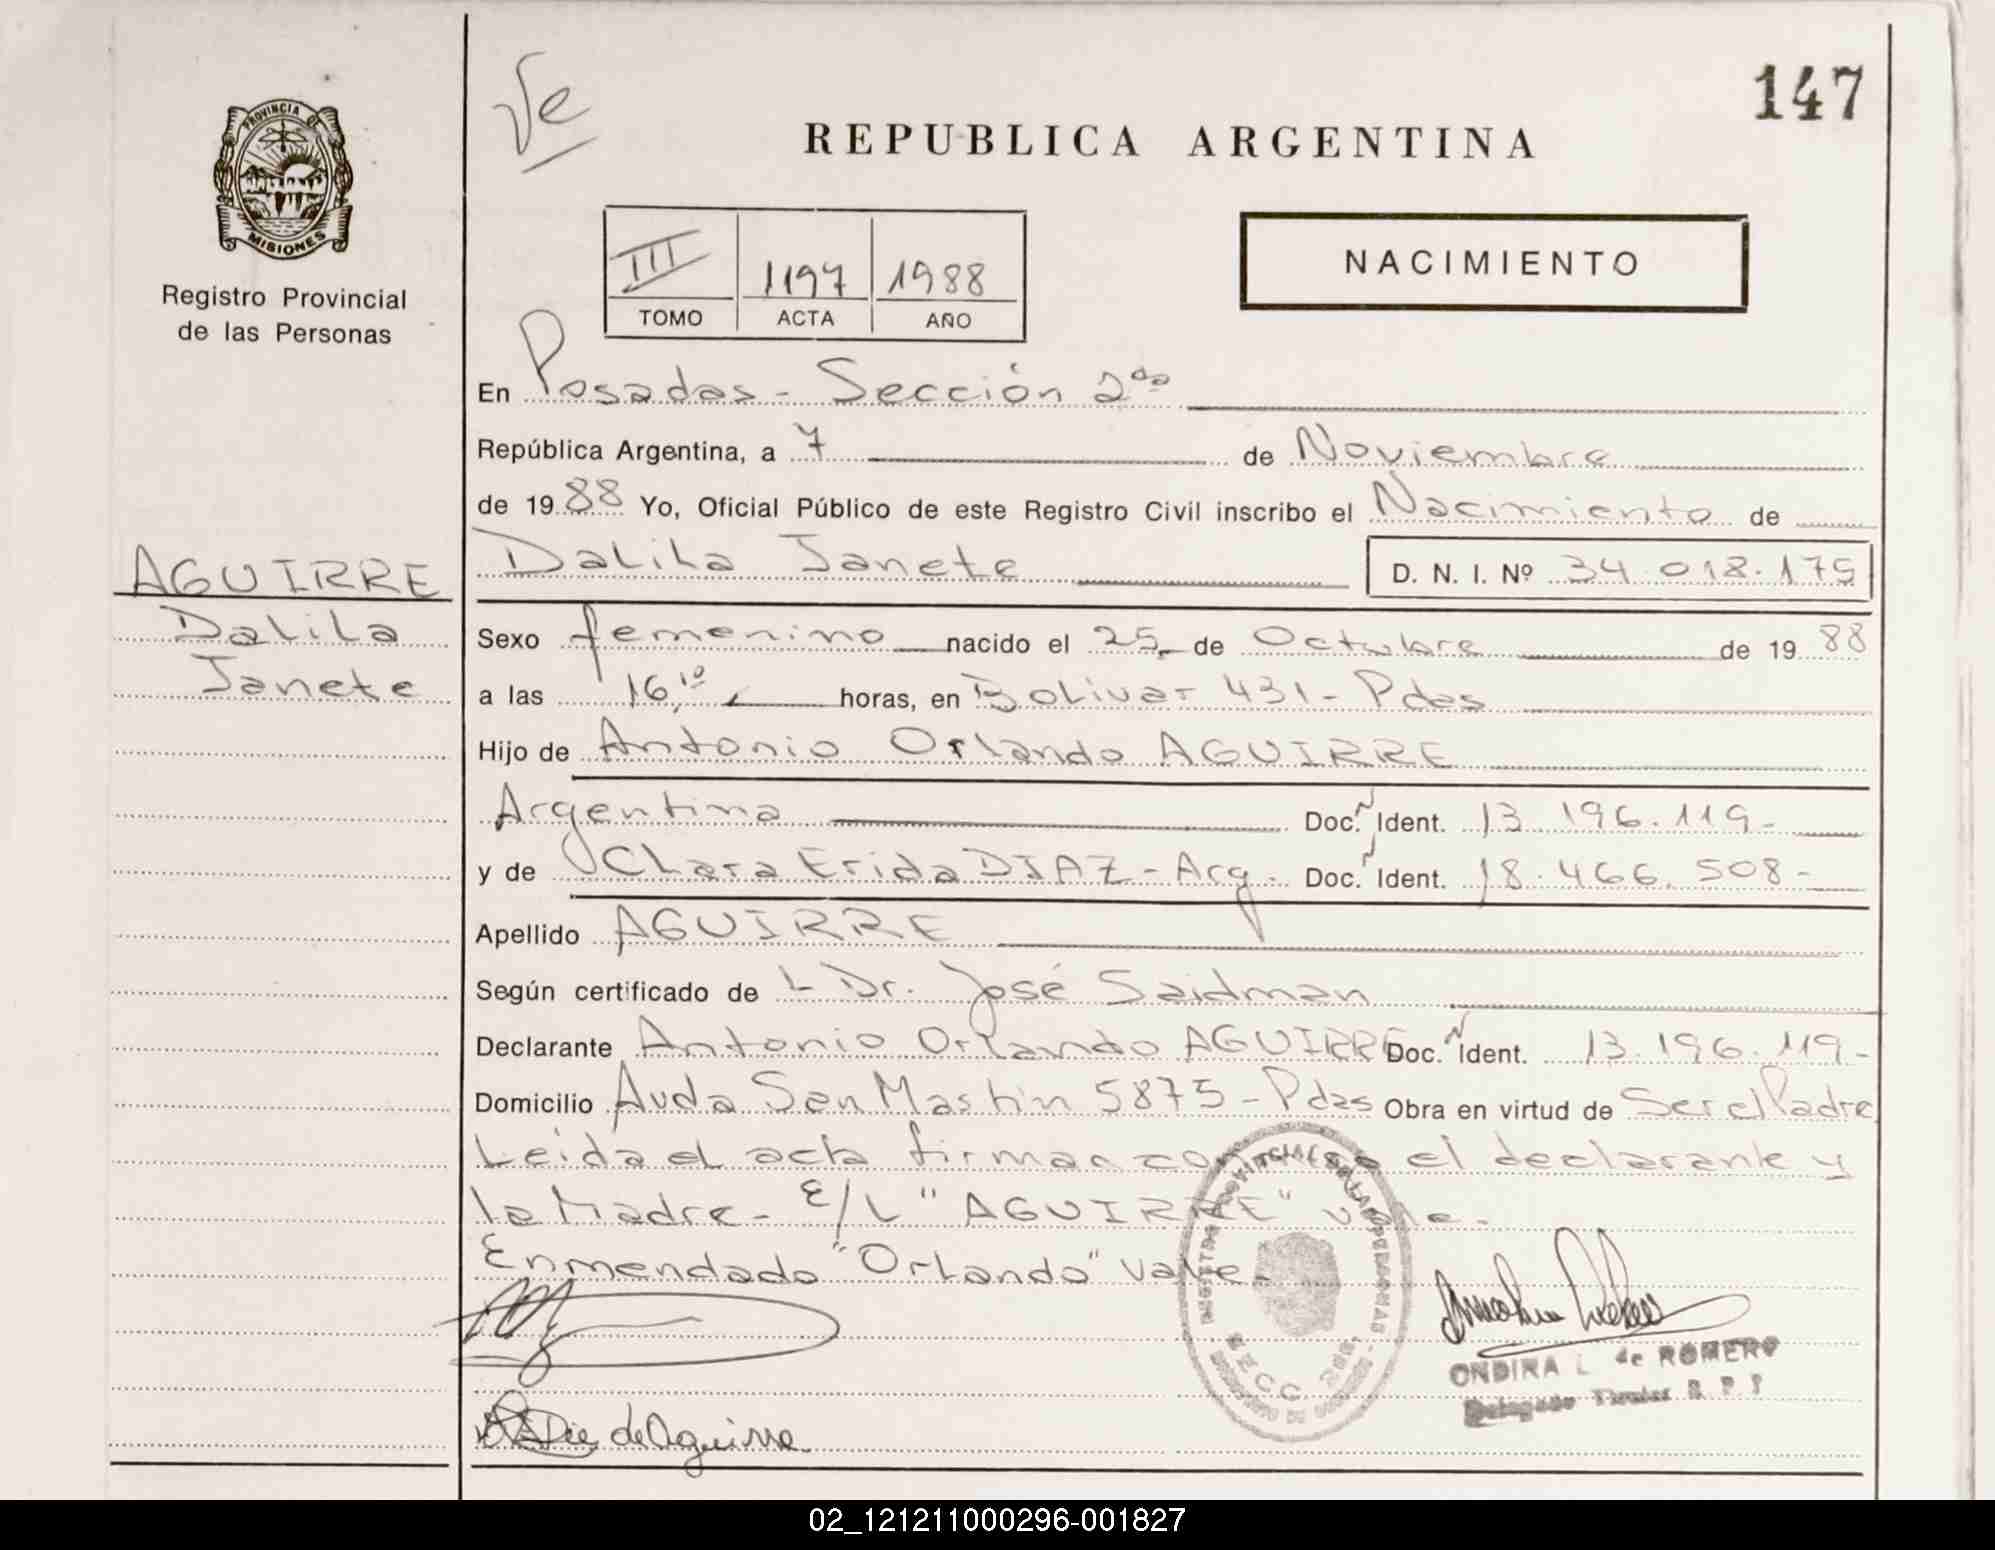 147
Ve
REPUBLICA ARGENTINA
PROVINCIA DE
MISIONES
Registro Provincial
de las Personas
NACIMIENTO
III 1197 1988
TOMO ACTA AÑO
En Posadas - Sección 2da
República Argentina, a 7 de Noviembre
de 1988 Yo, Oficial Público de este Registro Civil inscribo el Nacimiento de
Dalila Janete D. N. I. Nº 34.018.175
AGUIRRE
Dalila
Janete
Sexo femenino nacido el 25 de Octubre de 1988
a las 16,10 horas, en Bolivar 431 - Pdas
Hijo de Antonio Orlando AGUIRRE
Argentina Doc. Ident. 13.196.119-
y de Clara Erida DIAZ - Arg. Doc. Ident. 18.466.508-
Apellido AGUIRRE
Según certificado de L Dr. José Saidman
Declarante Antonio Orlando AGUIRRE Doc. Ident. 13.196.119-
Domicilio Avda San Martin 5875 - Pdas Obra en virtud de Ser el Padre
Leida el acta firman conmigo el declarante y
la Madre - E/L "AGUIRRE" vale.
Enmendado "Orlando" vale.
de Aguirre
ONDINA L. de ROMERO
Delegado Titular R. P. P.
02_121211000296-001827